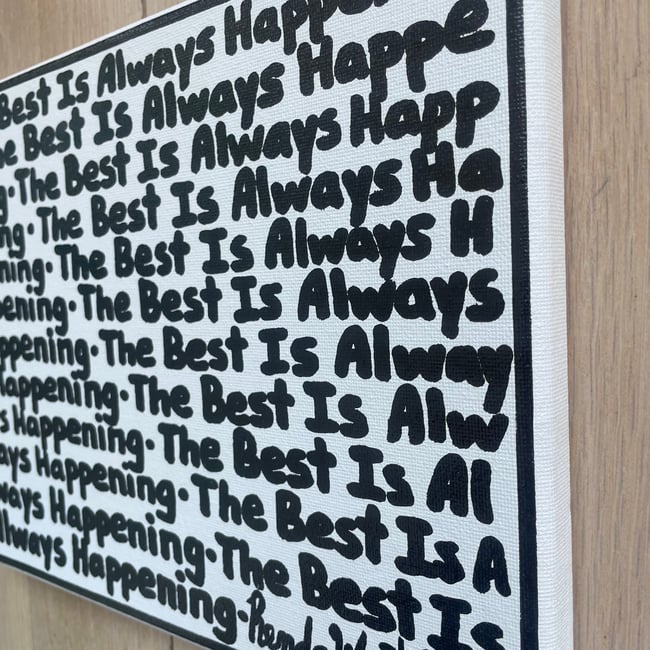 Best Is Always Happe
he Best Is Always Happe
g·The Best Is Always Happ
ng·The Best Is Always Ha
ning·The Best Is Always H
pening·The Best Is Always
ppening·The Best Is Alway
Happening·The Best Is Alw
s Happening·The Best Is Al
ays Happening·The Best Is A
ways Happening·The Best Is
Always Happening·